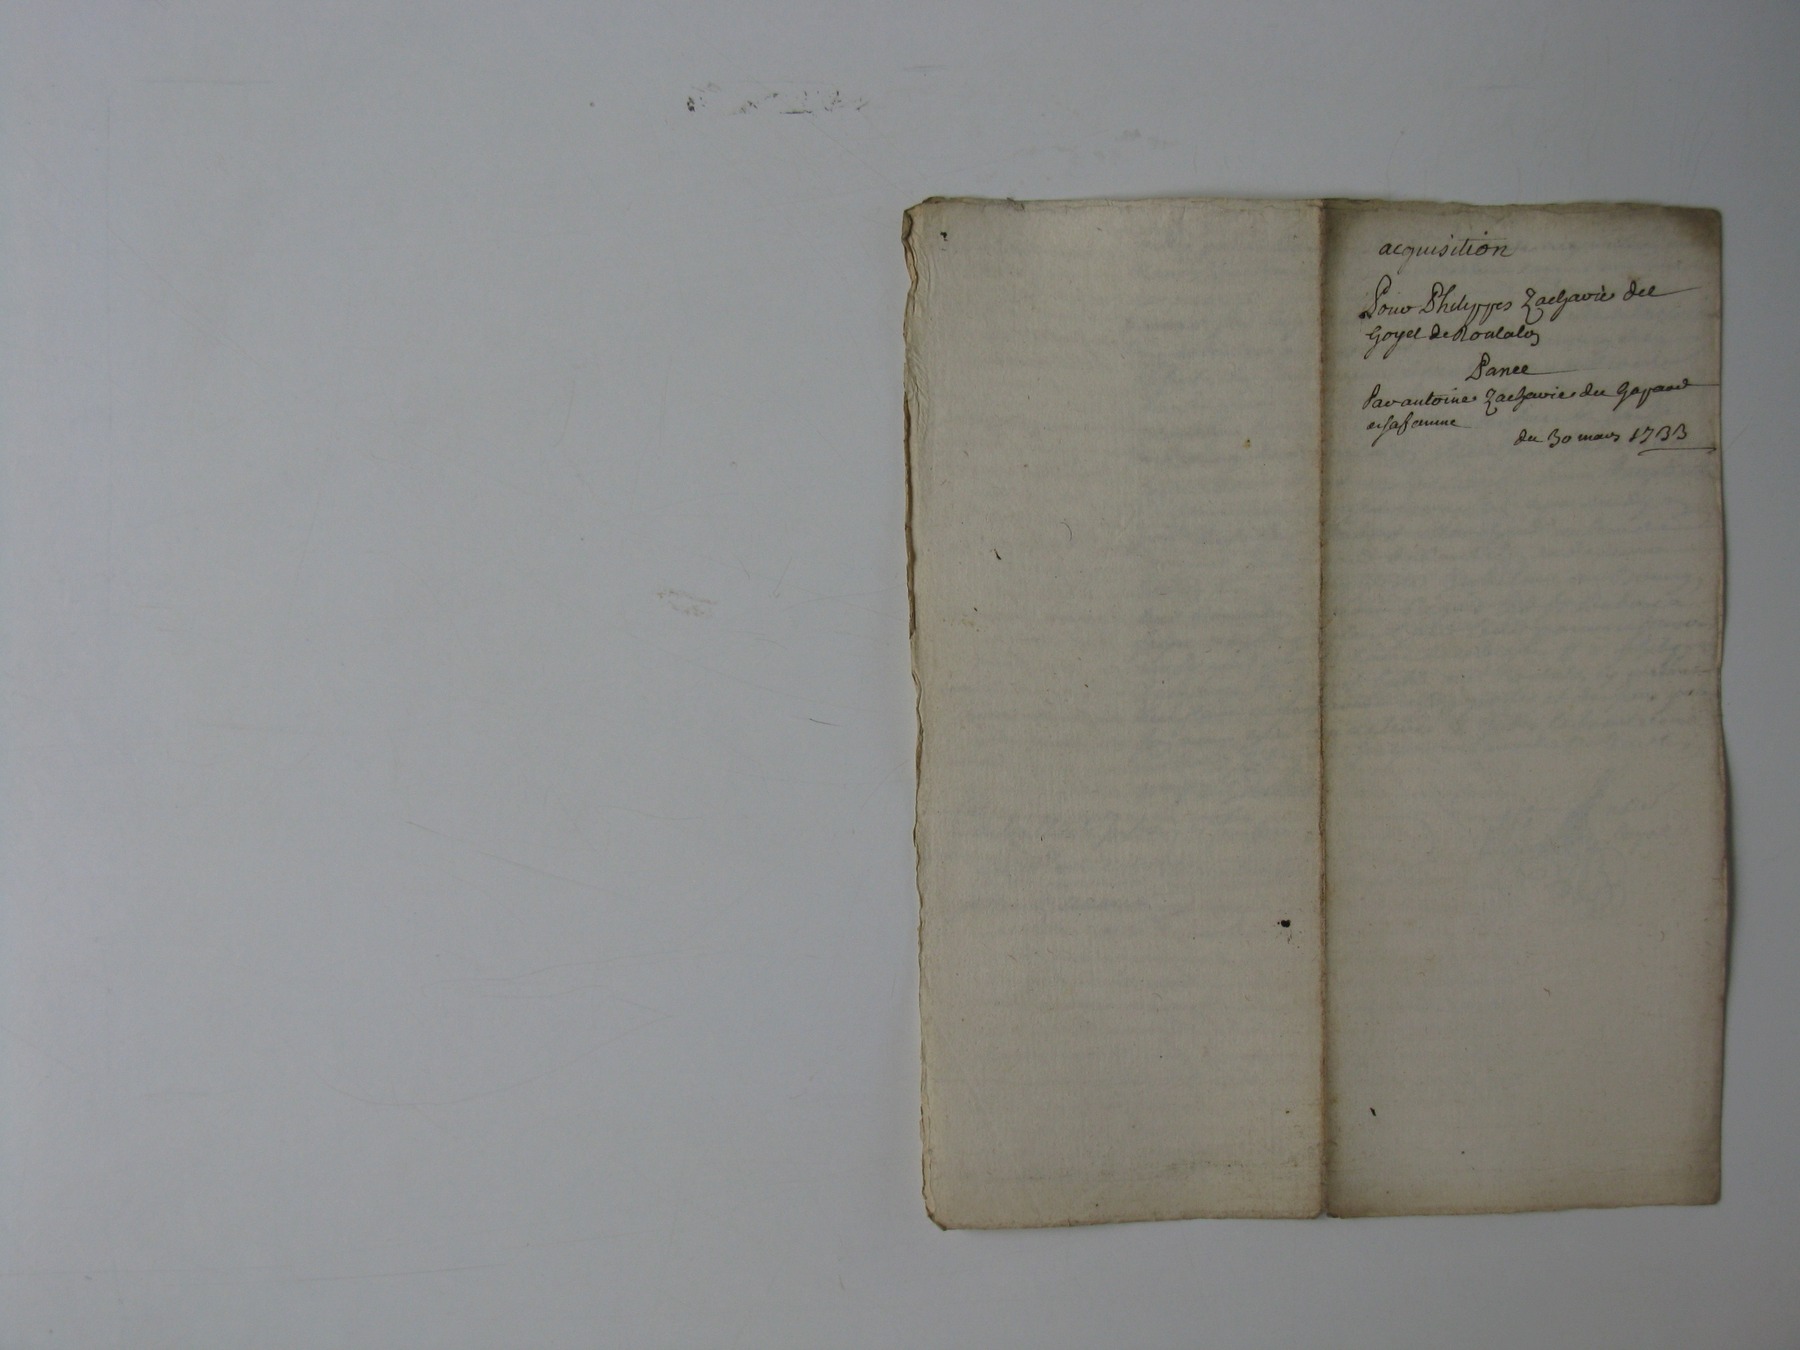 acquisition
Pour Philippes Zacharie del
Goyet de Roulaloy
Panee
Par antoine Zacharie du Goyaud
et sa femme
du 30 mars 1733